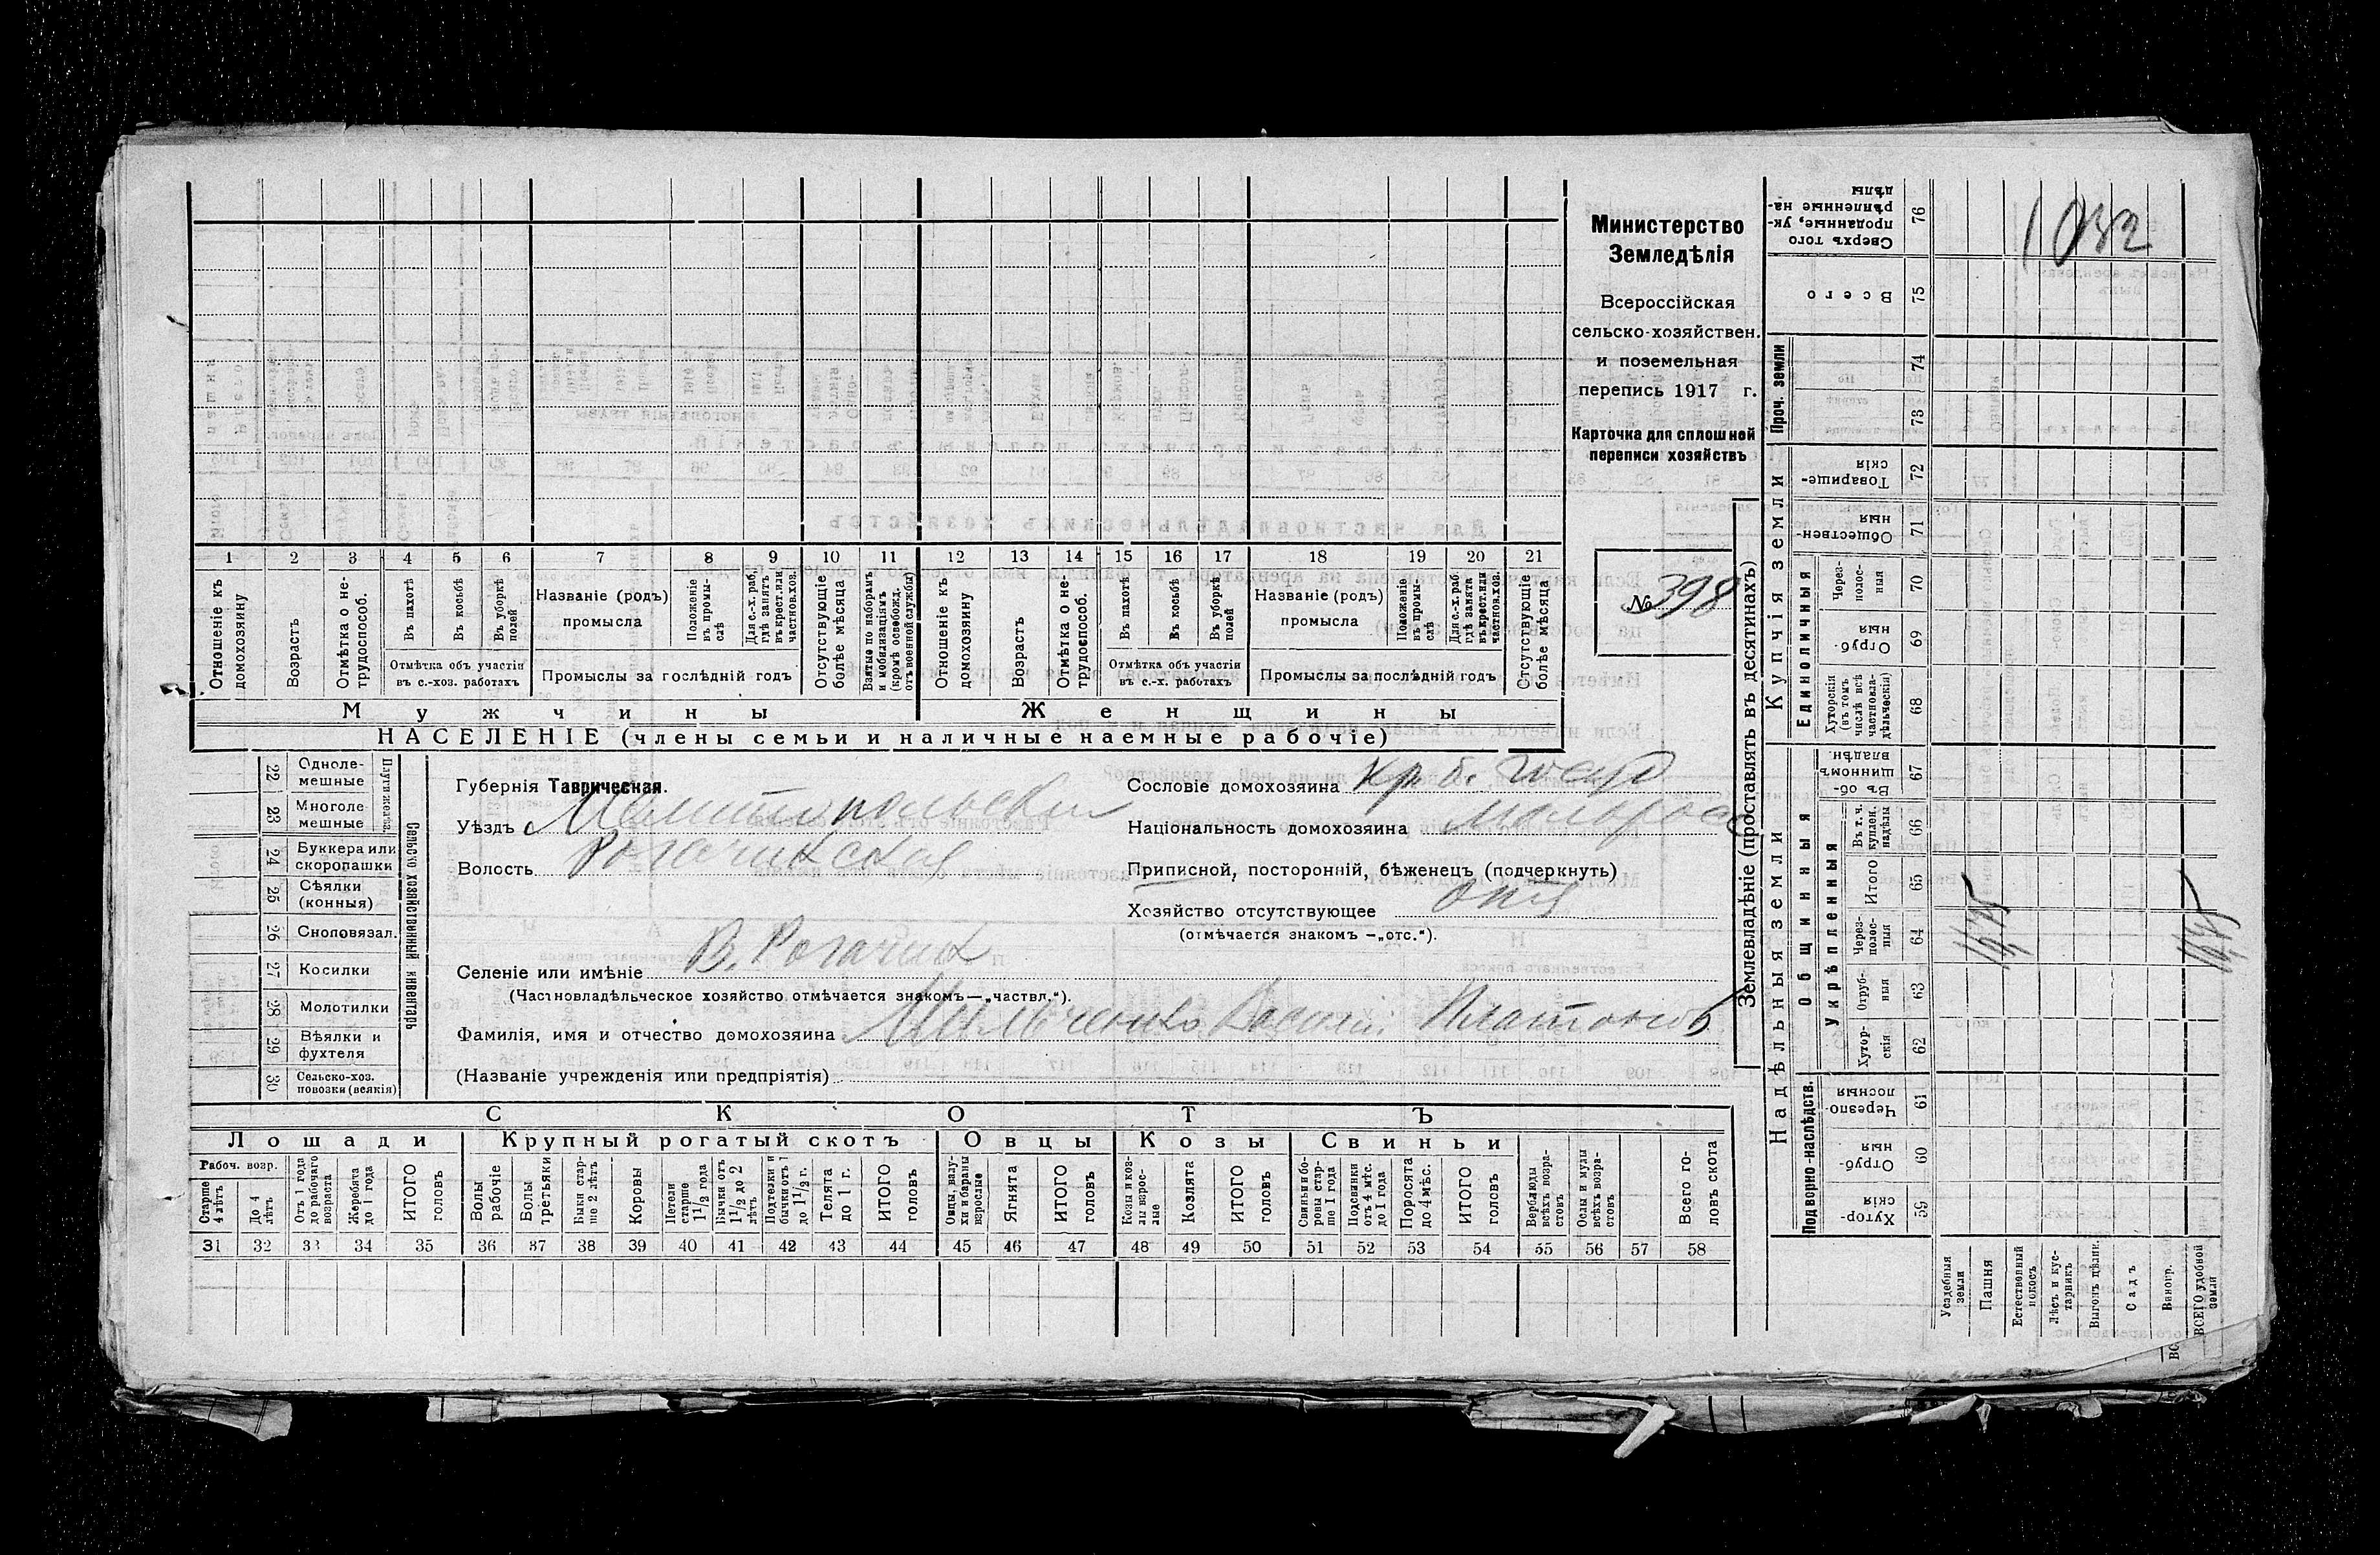 Министерство
Земледѣлія
Всероссійская
сельско-хозяйствен.
и поземельная
перепись 1917 г.
Карточка для сплошной
переписи хозяйствъ
№ 398
1 2 3 4 5 6 7 8 9 10 11 12 13 14 15 16 17 18 19 20 21
Отношеніе къ домохозяину
Возрастъ
Отмѣтка о нетрудоспособ.
Въ пахотѣ
Въ косьбѣ
Въ уборкѣ полей
Отмѣтка объ участіи
въ с.-хоз. работахъ
Названіе (родъ)
промысла
Положеніе въ промыслѣ
Для с.-х. раб. гдѣ занятъ въ крест. или частнов. хоз.
Промыслы за послѣдній годъ
Отсутствующіе болѣе мѣсяца
Взятые по наборамъ и мобилизаціямъ (кромѣ освобожд. отъ военной службы)
Отношеніе къ домохозяину
Возрастъ
Отмѣтка о нетрудоспособ.
Въ пахотѣ
Въ косьбѣ
Въ уборкѣ полей
Отмѣтка объ участіи
въ с.-х. работахъ
Названіе (родъ)
промысла
Положеніе въ промыслѣ
Для с.-х. раб. гдѣ занята въ крест. или частнов. хоз.
Промыслы за послѣдній годъ
Отсутствующіе болѣе мѣсяца
Мужчины Женщины
НАСЕЛЕНІЕ (члены семьи и наличные наемные рабочіе)
22 Однолемешные
23 Многолемешные
Плуги желѣз.
24 Буккера или скоропашки
25 Сѣялки (конныя)
26 Сноповязал.
27 Косилки
28 Молотилки
29 Вѣялки и фухтеля
30 Сельско-хоз. повозки (всякія)
Сельско хозяйственный инвентарь
Губернія Таврическая.
Уѣздъ Мелитопольскій
Волость Рогачикская
Селеніе или имѣніе В. Рогачик
(Частновладѣльческое хозяйство отмѣчается знакомъ—„частвл.“).
Фамилія, имя и отчество домохозяина Мильченко Василій Платонов
(Названіе учрежденія или предпріятія)
Сословіе домохозяина Кр. б. госуд
Національность домохозяина малорос
Приписной, посторонній, бѣженецъ (подчеркнуть)
Хозяйство отсутствующее отс
(отмѣчается знакомъ —„отс.“).
СКОТЪ
Лошади Крупный рогатый скотъ Овцы Козы Свиньи
Рабоч. возр.
Старше 4 лѣтъ
До 4 лѣтъ
Отъ 1 года до рабочаго возраста
Жеребята до 1 года
ИТОГО головъ
Волы рабочіе
Волы третьяки
Быки старше 2 лѣтъ
Коровы
Нетели старше 1½ года
Бычки отъ 1½ до 2 лѣтъ
Подтелки и бычки отъ 1 до 1½ г.
Телята до 1 г.
ИТОГО головъ
Овцы, валухи и бараны взрослые
Ягнята
ИТОГО головъ
Козы и козлы взрослые
Козлята
ИТОГО головъ
Свиньи и боровы старше 1 года
Подсвинки отъ 4 мѣс. до 1 года
Поросята до 4 мѣс.
ИТОГО головъ
Верблюды всѣхъ возрастовъ
Ослы и мулы всѣхъ возрастовъ
Всего головъ скота
31 32 33 34 35 36 37 38 39 40 41 42 43 44 45 46 47 48 49 50 51 52 53 54 55 56 57 58
Землевладѣніе (проставлять въ десятинахъ)
Купчія земли
Надѣльныя земли
Сверхъ того проданные, укрѣпленные надѣлы 76
1032
Всего 75
Проч. земли
74
73
Товарищескія 72
Общественныя 71
Единоличныя
Черезполосныя 70
Отрубныя 69
Хуторскія (въ томъ числѣ всѣ частновладѣльческія) 68
Общинныя
Въ общинномъ владѣн. 67
Укрѣпленныя
Въ т. ч. куплен. надѣлы 66
Итого 65
Черезполосныя 64
Отрубныя 63
Хуторскія 62
Подворно-наслѣдств.
Черезполосныя 61
Отрубныя 60
Хуторскія 59
Усадебныя земли
Пашня
Естественный покосъ
Лѣсъ и кустарникъ
Выгонъ цѣлин.
Садъ
Виногр.
ВСЕГО удобной земли